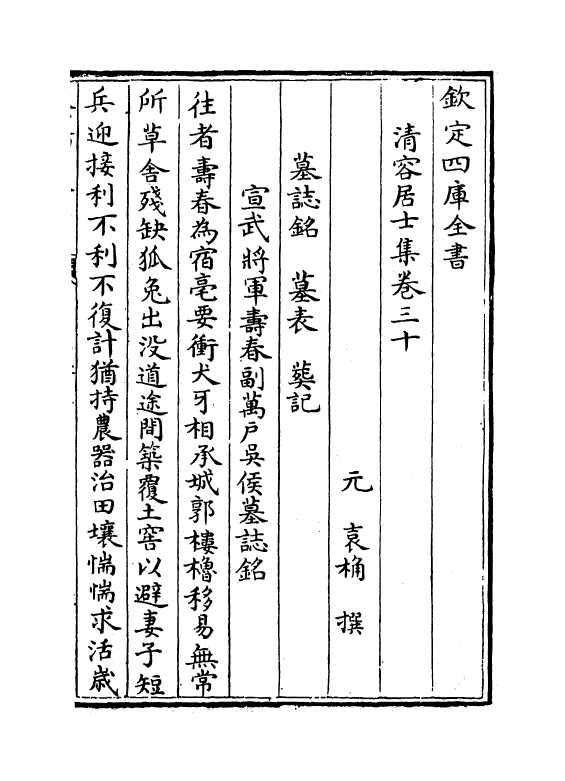 欽定四庫全書
清容居士集卷三十
元 袁桷 撰
墓誌銘 墓表 葬記
宣武將軍壽春副萬戶吳侯墓誌銘
往者壽春為宿亳要衝犬牙相承城郭樓櫓移易無常
所草舍殘缺狐兔出没道途間築覆土窖以避妻子短
兵迎接利不利不復計猶持農器治田壤惴惴求活歲